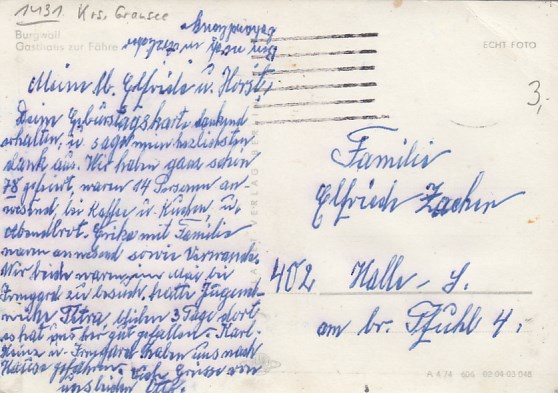 1431 Krs. Gransee
Burgwall
Gasthaus zur Fähre
ECHT FOTO
3,-
Meine lb. Elfriede u. Horst,
Deine Geburtstagskarte dankend
erhalten, u. sage meinen herzlichsten
Dank aus. Wir haben ganz schön
78 gefeiert, waren 14 Personen an-
wesend, bei Kaffee u. Kuchen, u.
Abendbrot. Erika mit Familie
waren anwesend sowie Verwandte.
Wir beide waren zum Mai bei
Irmgard zu besuch, hatte Jugend-
weihe Petra, blieben 3 Tage dort
es hat uns sehr gut gefallen. Karl-
Heinz u. Irmgard haben uns nach
Hause gefahren. Viele Grüsse von
uns beiden Otto.
VERLAG
Familie
Elfriede Zachen
402 Halle - S.
am br. Pfuhl 4.
A 4 74 606 02 04 03 048